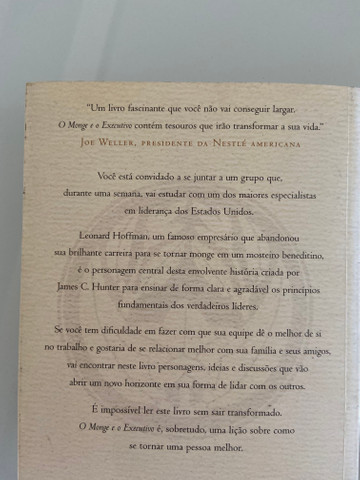 "Um livro fascinante que você não vai conseguir largar.
O Monge e o Executivo contém tesouros que irão transformar a sua vida."
Joe Weller, presidente da Nestlé americana
Você está convidado a se juntar a um grupo que,
durante uma semana, vai estudar com um dos maiores especialistas
em liderança dos Estados Unidos.
Leonard Hoffman, um famoso empresário que abandonou
sua brilhante carreira para se tornar monge em um mosteiro beneditino,
é o personagem central desta envolvente história criada por
James C. Hunter para ensinar de forma clara e agradável os princípios
fundamentais dos verdadeiros líderes.
Se você tem dificuldade em fazer com que sua equipe dê o melhor de si
no trabalho e gostaria de se relacionar melhor com sua família e seus amigos,
vai encontrar neste livro personagens, ideias e discussões que vão
abrir um novo horizonte em sua forma de lidar com os outros.
É impossível ler este livro sem sair transformado.
O Monge e o Executivo é, sobretudo, uma lição sobre como
se tornar uma pessoa melhor.